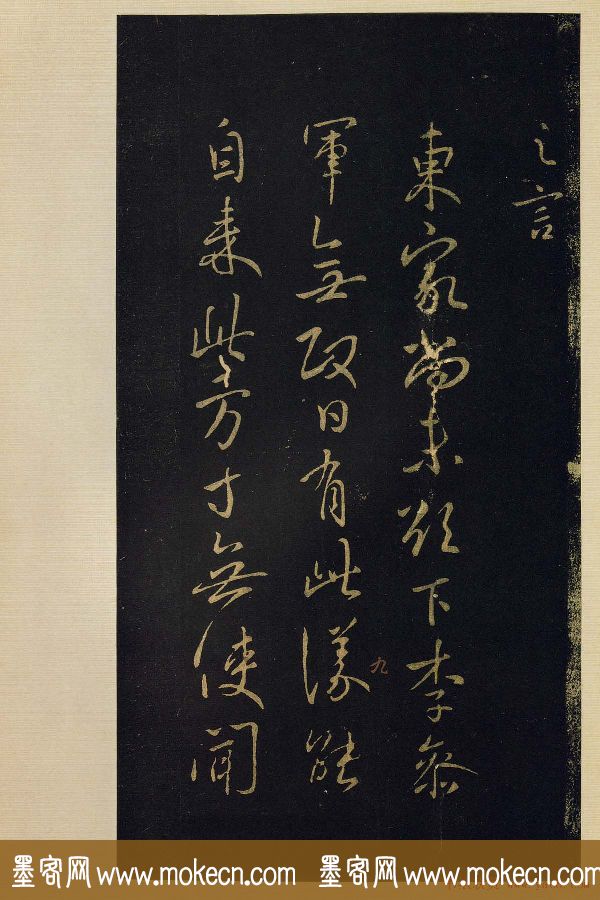 之言
東家尚未欲下李參
軍無日有此議能
自來此方寸無使聞
九
墨客网 www.mokecn.com 墨客网 www.mokecn.com